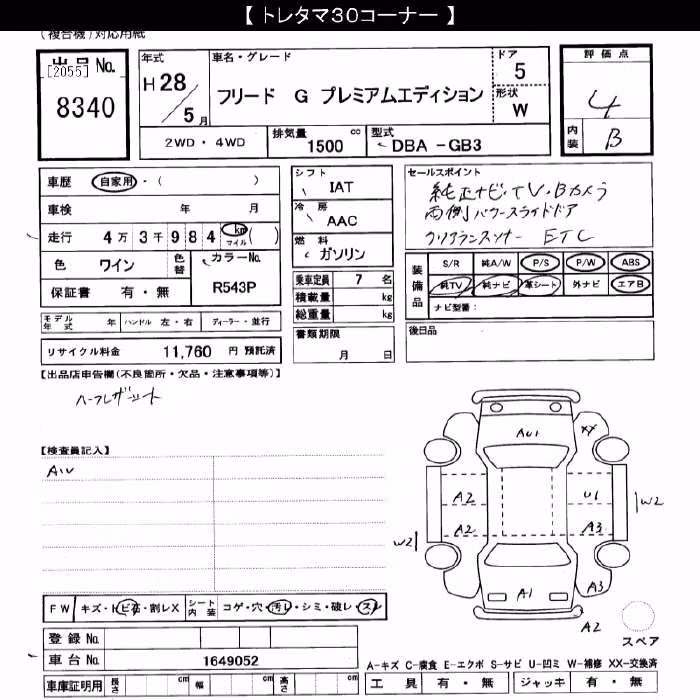 【 トレタマ30コーナー 】
(複合機)対応用紙
出品 No.
[2055]
8340
年式
H 28 / 5 月
車名・グレード
フリード G プレミアムエディション
ドア
5
形状
W
評価点
4
内装
B
2WD・4WD
排気量
1500 cc
型式
DBA -GB3
車歴 自家用・( )
車検 年 月
走行 4万 3千 9 8 4 km マイル ( )
色 ワイン
色替
カラーNo.
R543P
保証書 有・無
シフト
IAT
冷房
AAC
燃料
ガソリン
乗車定員 7 名
積載量 kg
総重量 kg
書類期限
月 日
セールスポイント
純正ナビ・TV・Bカメラ
両側パワースライドドア
クリアランスソナー ETC
装備品
S/R 純A/W P/S P/W ABS
純TV 純ナビ 革シート 外ナビ エアB
ナビ型番:
後日品
モデル年式 年 ハンドル 左・右 ディーラー・並行
リサイクル料金 11,760 円 預託済
【出品店申告欄(不良箇所・欠品・注意事項等)】
ハーフレザーシート
【検査員記入】
AU1
XX
A2
U1
W2
A2
A3
W2
A1
A3
A2
スペア
FW キズ・トビ石・割レX シート内装 コゲ・穴・汚レ・シミ・破レ・スレ
登録 No.
車台 No. 1649052
車庫証明用 長さ cm 幅 cm 高さ cm
A-キズ C-腐食 E-エクボ S-サビ U-凹ミ W-補修 XX-交換済
工具 有・無 ジャッキ 有・無